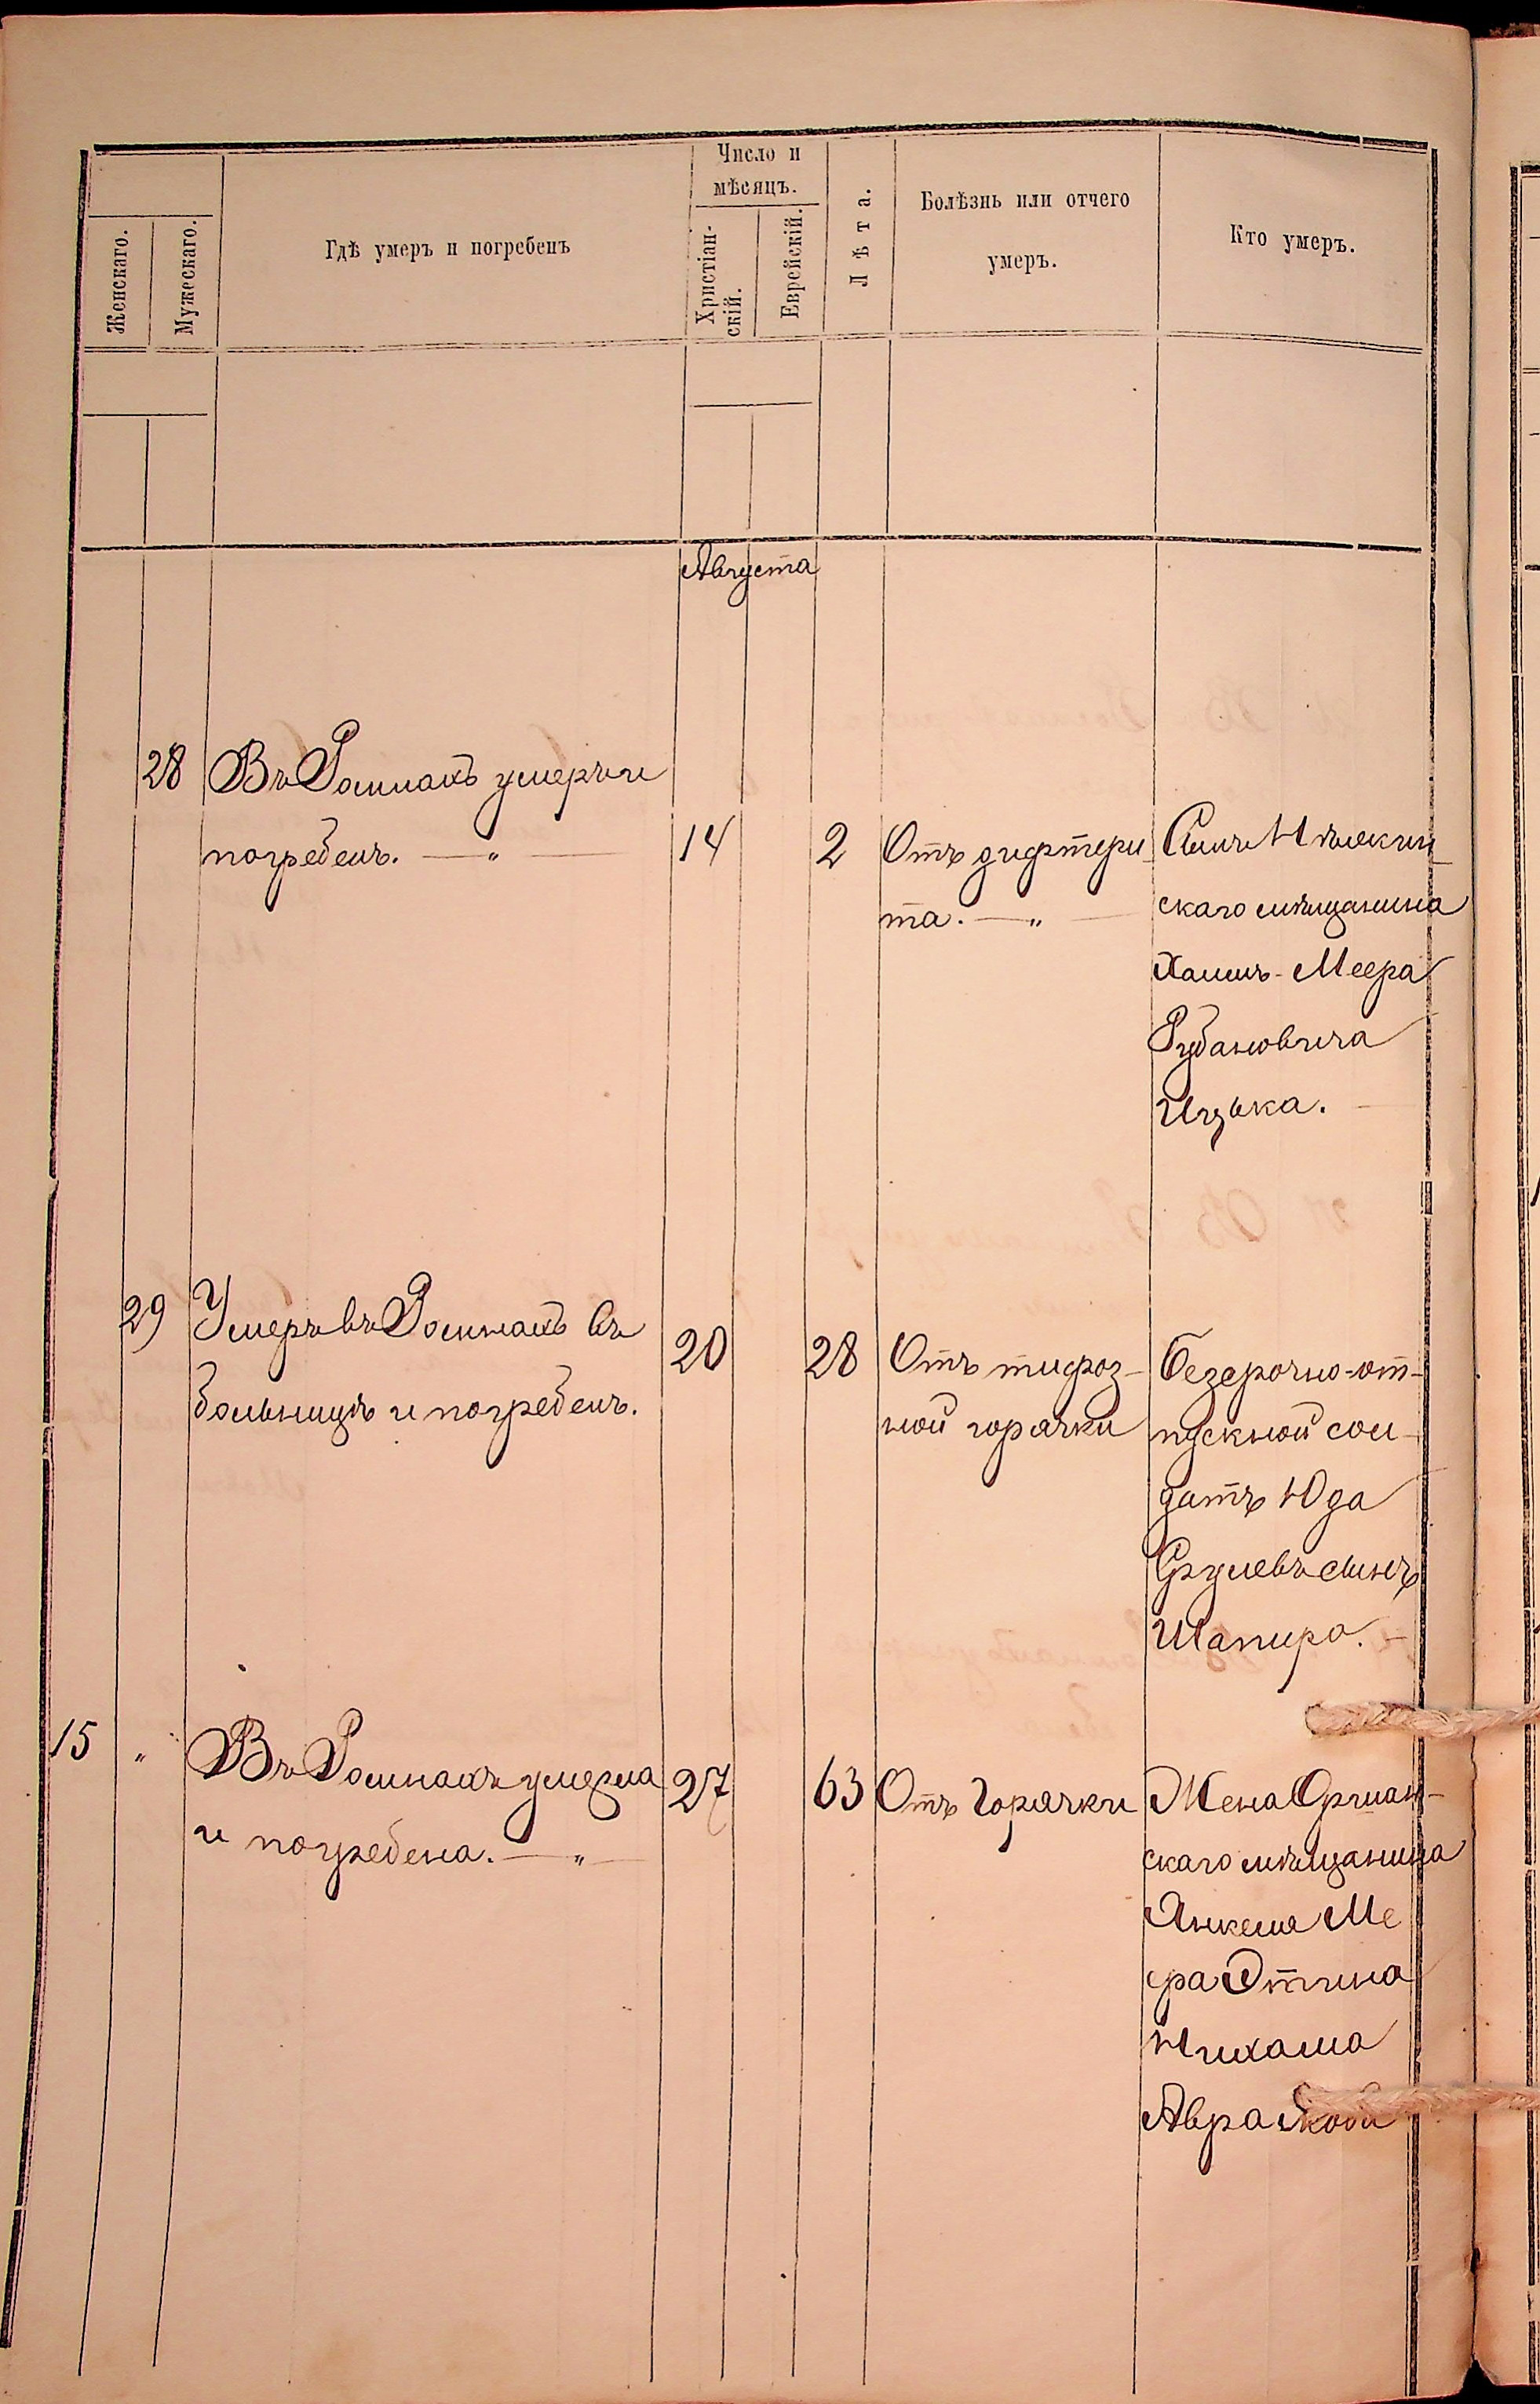 Женскаго.
Мужескаго.
Гдѣ умеръ и погребенъ
Число и
мѣсяцъ.
Христіан-
скій.
Еврейскій.
Лѣта.
Болѣзнь или отчего
умеръ.
Кто умеръ.
Августа
28 Въ Ромнахъ умеръ и
погребенъ. — " —
14 2 Отъ дифтери-
та. — " —
Сынъ
скаго мѣщанина
Хаимъ-Меера
Рубановича
Ицька. —
29 Умеръ въ Ромнахъ въ
больницѣ и погребенъ.
20 28 Отъ тифоз-
ной горячки
безсрочно-от-
пускной сол-
датъ Юда
Срулевъ сынъ
Шапиро. —
15 " Въ Ромнахъ умерла
и погребена. — " —
27 63 Отъ Горячки
Жена Оршан-
скаго мѣщанина
Янкеля Ме
ера Этина
Михаша